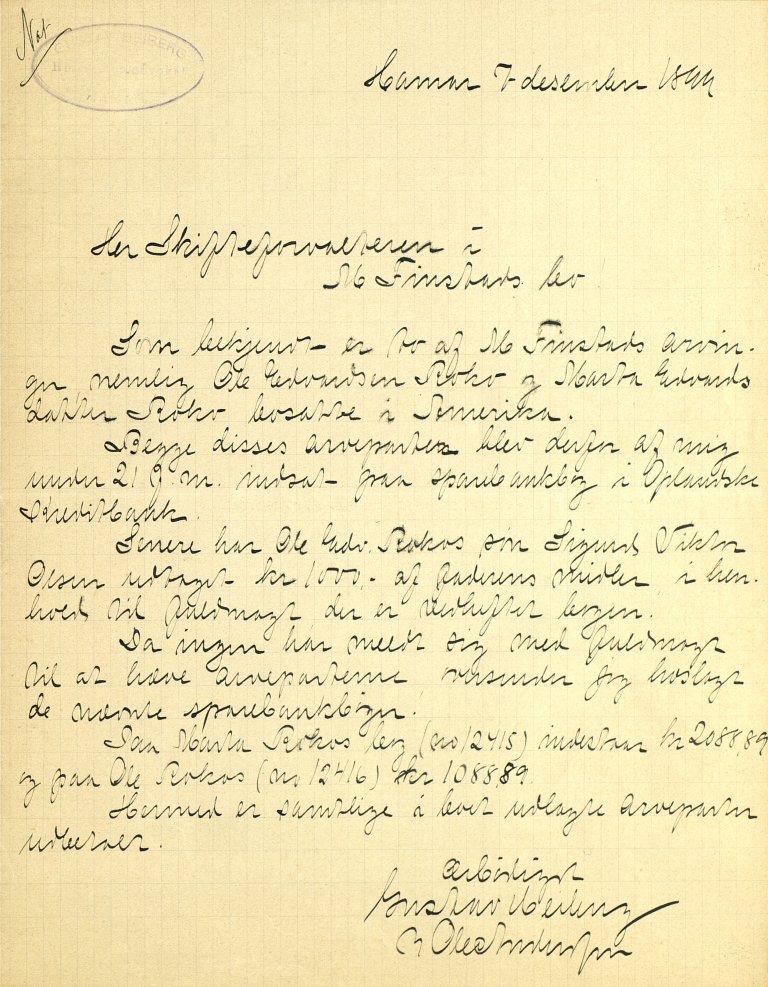 Not
Hamar 7 desember 1899
Herr Skifteforvalteren i
M Finstads bo!
Som bekjendt er to af M Finstads arvin-
ger nemlig Ole Edvardsen Roko og Marta Edvards
datter Roko bosatte i Amerika.
Begge disses arveparter blev derfor af mig
under 21 f. m. indsat paa sparebankbog i Oplandske
Kreditbank.
Senere har Ole Edv. Rokos søn Sigurd Viktor
Olsen udtaget kr 1000,- af faderens midler i hen-
hold til fuldmagt, der er vedheftet bogen.
Da ingen har meldt sig med fuldmagt
til at hæve arveparterne, oversender jeg hoslagt
de nævnte sparebankbøger.
Paa Marta Rokos bog (no 12415) indestaar kr 2088,89
og paa Ole Rokos (no 12416) kr 1088,89.
Hermed er samtlige i boet udlagte arveparter
udbetalt.
Ærbødigst
Gustav Heiberg
Ole Andersen